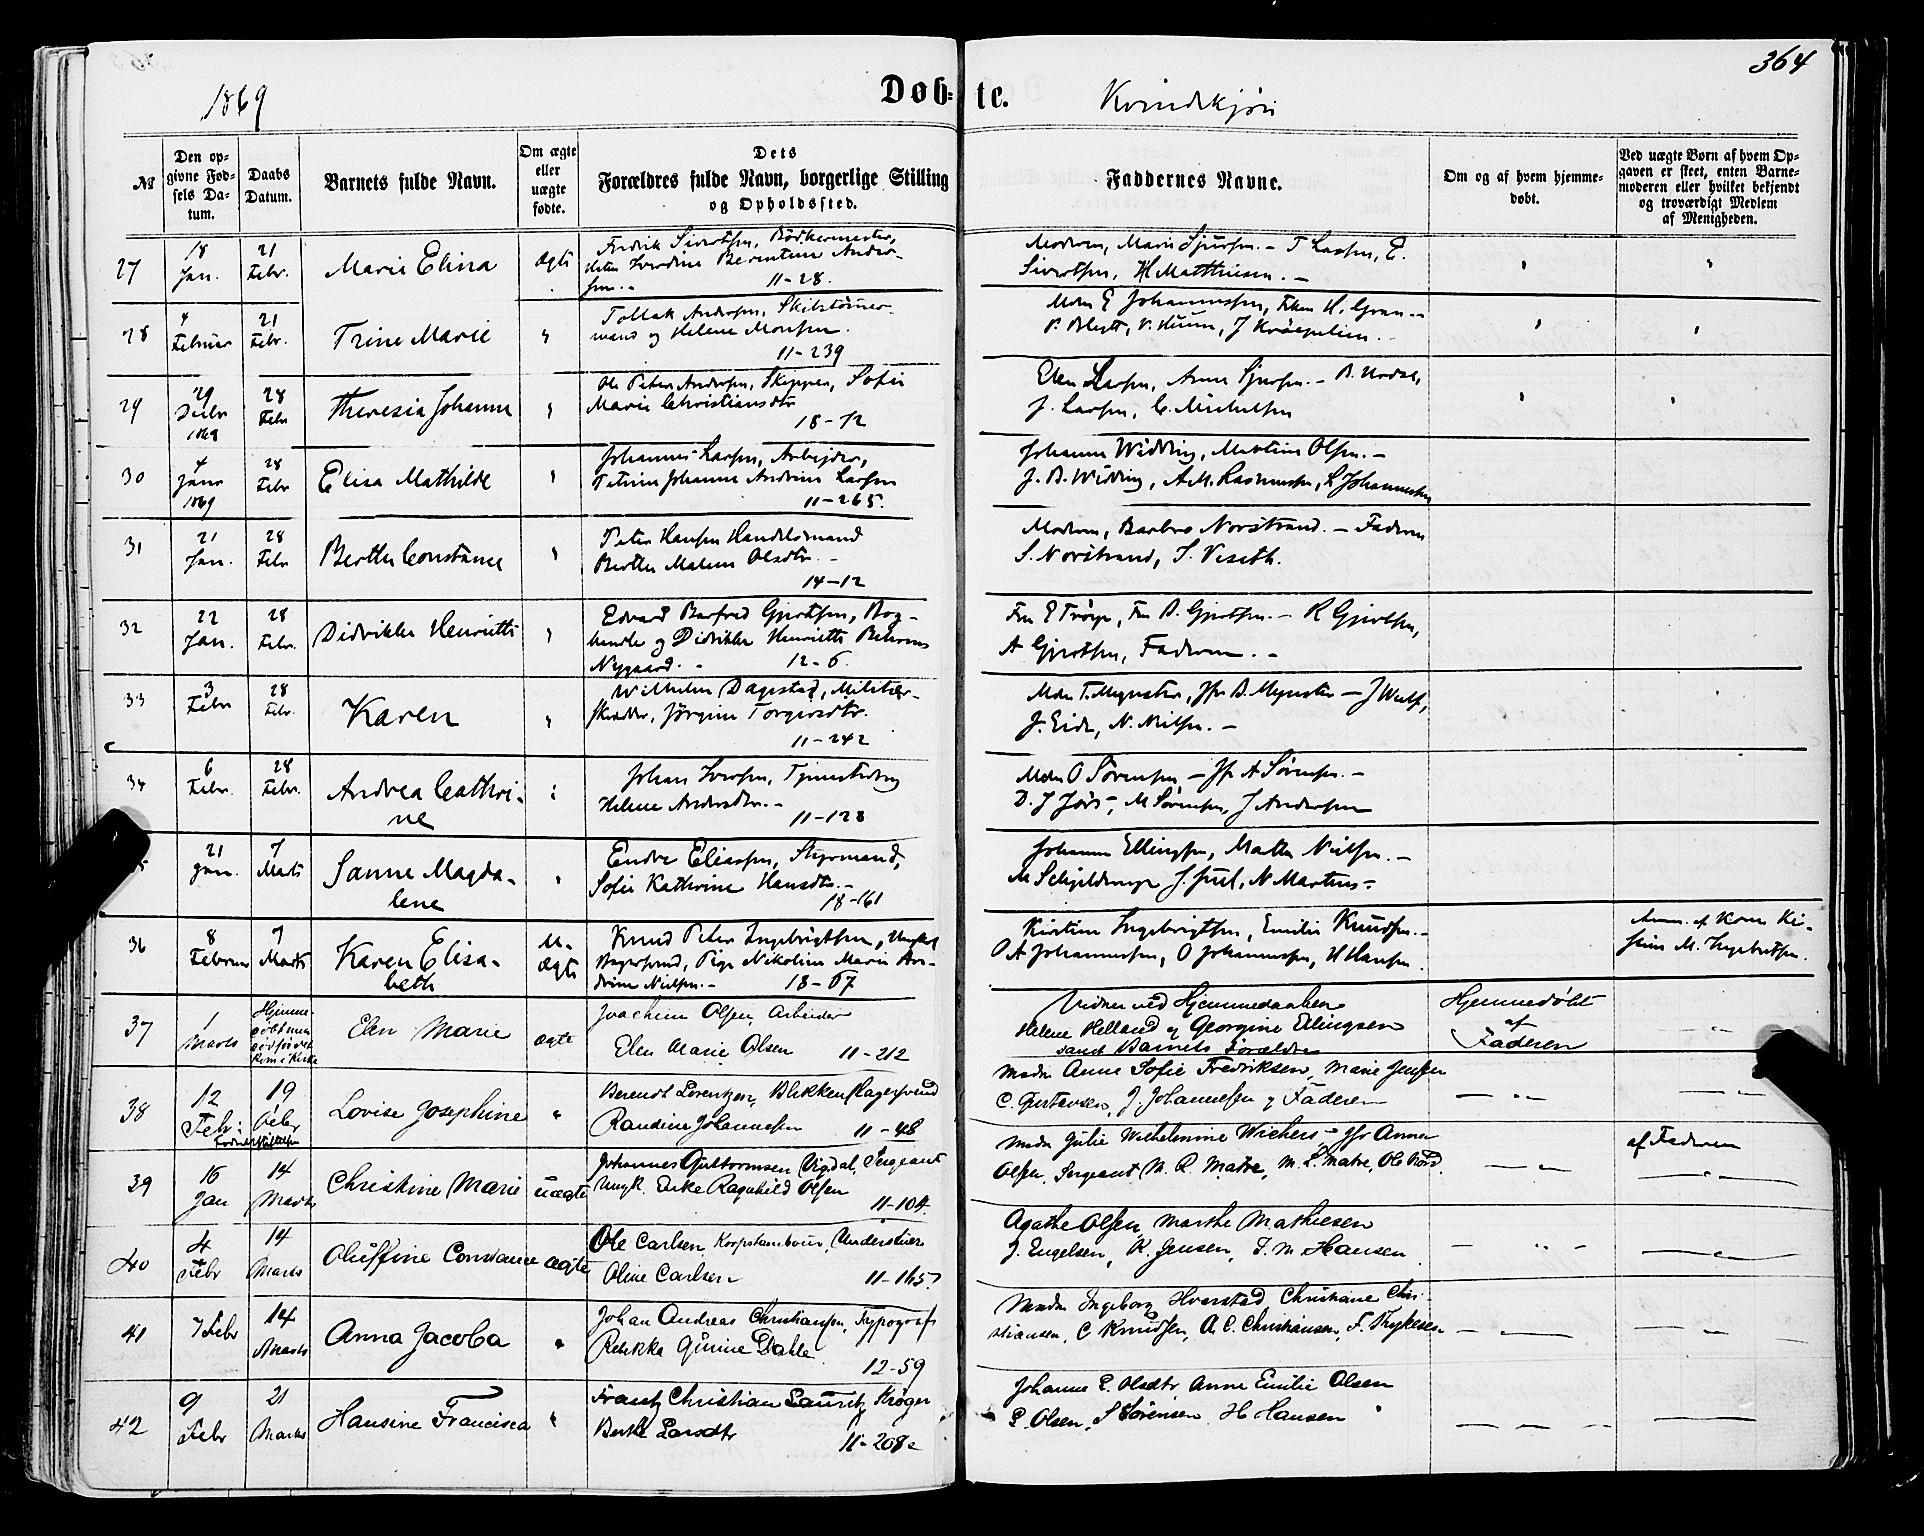 364
1869
Døb-te.
Kvindekjøn
№
Den opgivne Fødsels Datum.
Daabs Datum.
Barnets fulde Navn.
Om ægte eller uægte fødte.
Dets Forældres fulde Navn, borgerlige Stilling og Opholdssted.
Faddernes Navne.
Om og af hvem hjemmedøbt.
Ved uægte Børn af hvem Opgaven er skeet, enten Barnemoderen eller hvilket bekjendt og troværdigt Medlem af Menigheden.
27
18 Jan.
21 Febr.
Marie Elina
ægte
Fredrik Sivertsen, Bødkermester,
Berentine Andersen.
11-28.
Moderen, Marie Sjursen. - T Larsen, E.
Sivertsen, H Matthiesen. -
28
4 Februar
21 Febr.
Trine Marie
"
Tollak Andersen, Skibstømmermand og Helene Monsen.
11-239
Mdm E Johannessen, H. Gran -
P. Blytt, J Krøepelien.
29
29 Decbr 1868
28 Febr
Theresia Johanne
"
Ole Peter Andersen, Skipper, Sofie
Marie Christiansdtr
18-12
Elen Larsen, Anne Sjursen. -
J. Larsen, C. Michelsen
30
4 Janr 1869
28 Febr
Elisa Mathilde
"
Johannes Larsen, Arbejder,
Petrine Johanne Andrine Larsen
11-265.
Johanne Widding, Martine Olsen. -
J. B. Widding, A. M. Rasmussen, L Johannessen
31
21 Jan.
28 Febr
Berthe Constance
"
Peter Hansen Handelsmand
Berthe Malene Olsdtr. -
14-12
Moderen, Barbro Norstrand. - Faderen
S. Norstrand, S. Viseth.
32
22 Jan.
28 Febr.
Didrikke Henriette
"
Edvard Barfred Gjertsen, Boghandler og Didrikke Henriette Behrens
Nygaard. -
12-6.
Fru D. Gjertsen. - R Gjertsen,
A Gjertsen, Faderen. -
33
3 Febr
28 Febr.
Karen
"
Wilhelm Dagestad, Militær-
skrædder, Jørgine Torgersdtr.
11-242
Mdm T. Mynster, Jfr B. Mynster - J Wulf,
J. Eide, N. Nilsen. -
34
6 Febr.
28 Febr.
Andrea Cathrine
Johan Iversen,
Helene Andersdtr. -
11-128
Mdm O Sørensen - Jfr A Sørensen. -
M Sørensen, J Andersen
21 Jan.
7 Marts
Sanne Magdalene
"
Endre Eliassen, Styrmand,
Sofie Kathrine Hansdtr. -
18-161
Johanne Ellingsen, Marthe Nielsen. -
M Schjelderup J. Juul, N Martens -
36
8 Februar
7 Marts
Karen Elisabeth
U-ægte
Knud Peter Ingebrigtsen, Ungkarl
Bagersvend, Pige Nikoline Marie Andrine Nielsen. -
18-67
Kirstine Ingebrigtsen, Emilie Knudsen. -
O A Johannessen, O Johannessen, H Hansen.
Anm. af Kone Kistine M. Ingebrigtsen.
37
1 Marts
Hjemmedøbt
Elen Marie
ægte
Joachim Olsen, Arbeider
Elen Marie Olsen
11-212
Vidner ved Hjemmedaaben
Helene Helland og Georgine Ellingsen
samt Barnets Forældre
Hjemmedøbt
af
Faderen
38
12 Febr:
19 Febr
Lovise Josephine
"
Berendt Lorentzen, Blikkenslagersvend
Randine Johannessen
11-48
Madm Anne Sofie Fredriksen, Marie Jenssen
C. Gustavsen, J. Johannessen og Faderen
39
16 Jan
14 Marts
Christine Marie
uægte
Johannes Guttormsen Vigdal, Sergeant
Ungk. Enke Ragnhild Olsen
11-104.
Madm Julie Wilhelmine Wichers - Jfr Anna
Olsen, Sergeant N. R. Matre, M. L. Matre, Ole Nord.
af Faderen
40
4 Febr
14 Marts
Oluffine Constance
ægte
Ole Carlsen, Korpstambour, Underofficer
Oline Carlsen
11-165
Agathe Olsen, Marthe Mathiesen
J. Engelsen, K. Jensen, S. M. Hansen
41
7 Febr
14 Marts
Anna Jacoba
"
Johan Andreas Christiansen, Typograf
Rebekka Gurine Dahle
12-59
Madm Ingeborg Hverstad Christiane Christiansen, C Knudsen, A. C. Christiansen, F. Thykesen
42
9 Febr
21 Marts
Hansine Francisca
"
Frantz Christian Lauritz Krøger
Berthe Larsdtr
11-208c
Johanne P. Olsdtr Anne Emilie Olsen
P Olsen, S Sørensen, H Hansen